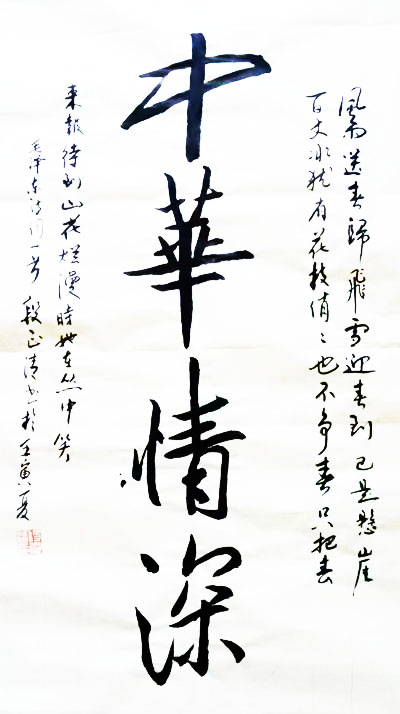 風雨送春歸飛雪迎春到已是懸崖
百丈冰犹有花枝俏〻也不争春只把春
中華情深
来報待到山花爛漫時她在丛中笑
毛泽东诗词一首 段正清书於壬寅夏